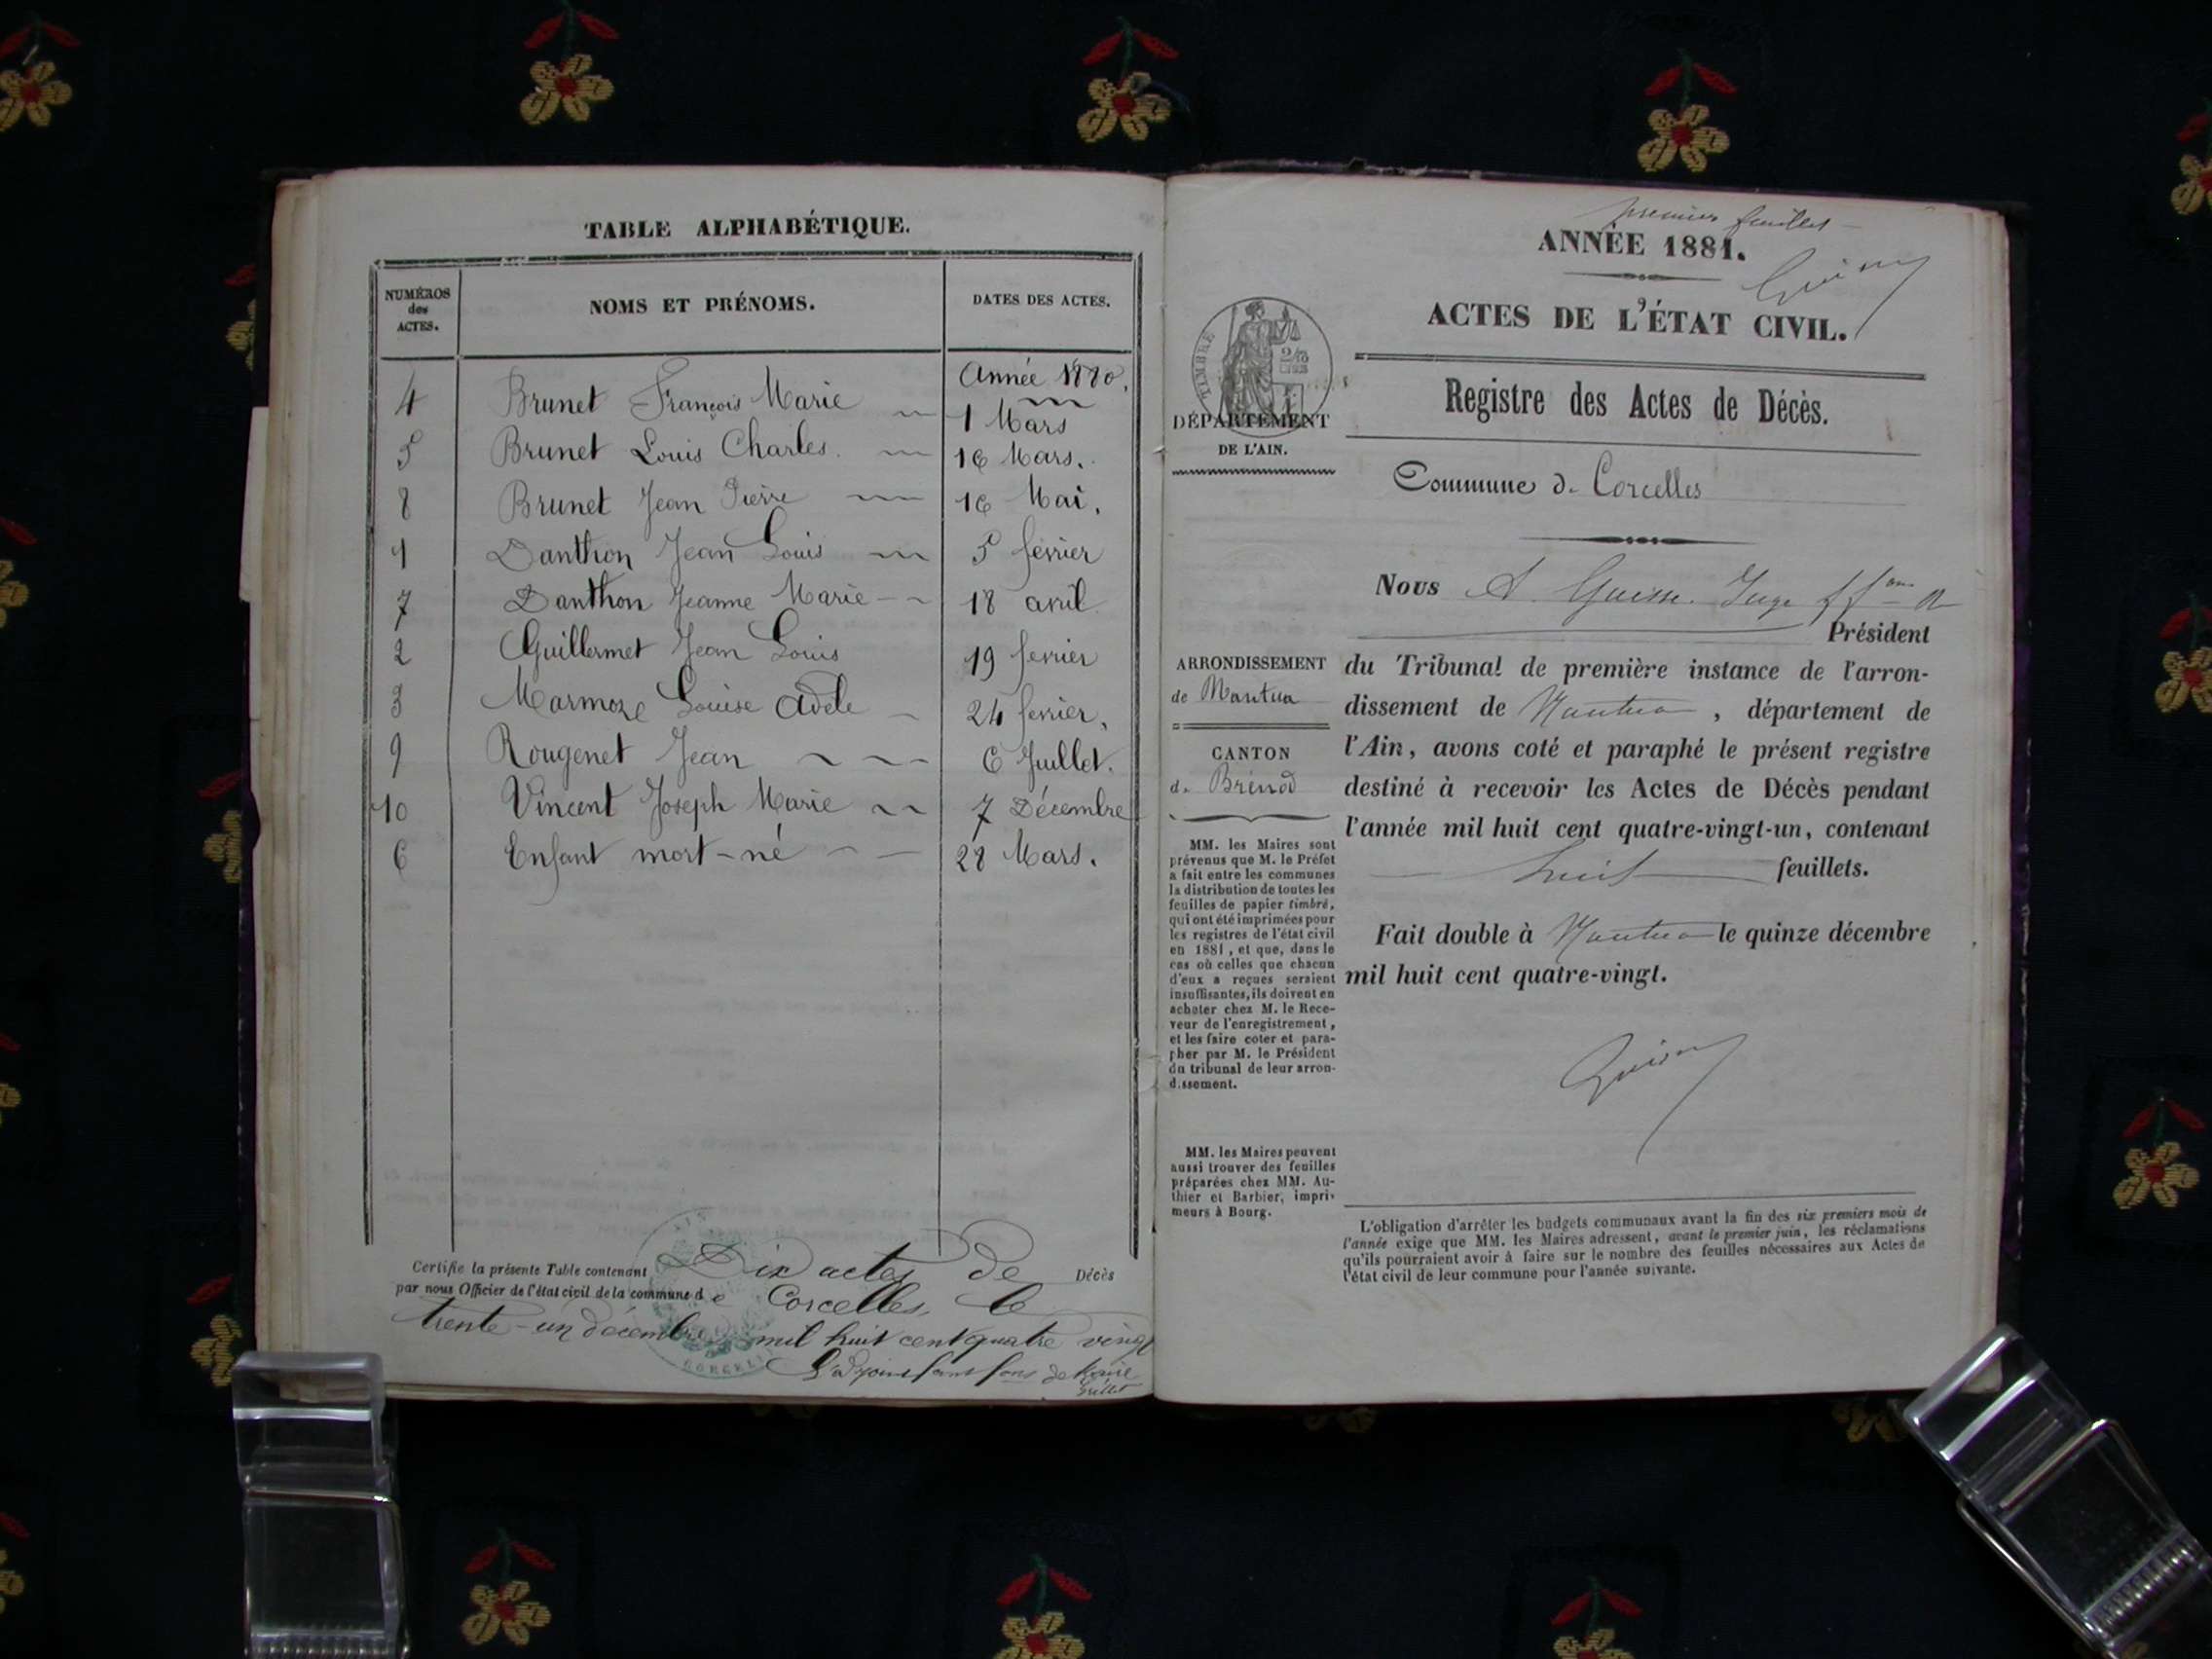 TABLE ALPHABÉTIQUE.
NUMÉROS
des
ACTES.
NOMS ET PRÉNOMS.
DATES DES ACTES.
Année 1880.
4 Brunet François Marie 1 Mars
5 Brunet Louis Charles. 16 Mars.
8 Brunet Jean Pierre 16 Mai.
1 Danthon Jean Louis 5 février
7 Danthon Jeanne Marie 18 avril
2 Guillermet Jean Louis 19 fevrier
3 Marmoze Louise Adele 24 fevrier.
9 Rougenet Jean 6 Juillet.
10 Vincent Joseph Marie 7 Décembre
6 Enfant mort-né 28 Mars.
Certifie la présente Table contenant Dix actes de Décès
par nous Officier de l'état civil de la commune de Corcelles, le
trente-un décembre mil huit cent quatre vingt
premier feuillet
ANNÉE 1881.
ACTES DE L'ÉTAT CIVIL.
TIMBRE
Registre des Actes de Décès.
DÉPARTEMENT
DE L'AIN.
Commune de Corcelles
Nous
Président
du Tribunal de première instance de l'arron-
dissement de Nantua, département de
l'Ain, avons coté et paraphé le présent registre
destiné à recevoir les Actes de Décès pendant
l'année mil huit cent quatre-vingt-un, contenant
huit feuillets.
Fait double à Nantua le quinze décembre
mil huit cent quatre-vingt.
ARRONDISSEMENT
de Nantua
CANTON
de Brénod
MM. les Maires sont
prévenus que M. le Préfet
a fait entre les communes
la distribution de toutes les
feuilles de papier timbré,
qui ont été imprimées pour
les registres de l'état civil
en 1881, et que, dans le
cas où celles que chacun
d'eux a reçues seraient
insuffisantes, ils doivent en
acheter chez M. le Rece-
veur de l'enregistrement,
et les faire coter et para-
pher par M. le Président
du tribunal de leur arron-
dissement.
MM. les Maires peuvent
aussi trouver des feuilles
préparées chez MM. Au-
thier et Barbier, impri-
meurs à Bourg.
L'obligation d'arrêter les budgets communaux avant la fin des six premiers mois de
l'année exige que MM. les Maires adressent, avant le premier juin, les réclamations
qu'ils pourraient avoir à faire sur le nombre des feuilles nécessaires aux Actes de
l'état civil de leur commune pour l'année suivante.